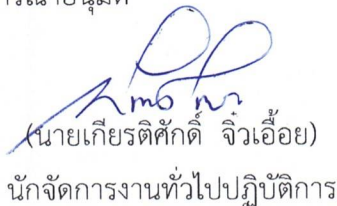 (นายเกียรติศักดิ์ จิ๋วเอื้อย)
นักจัดการงานทั่วไปปฏิบัติการ